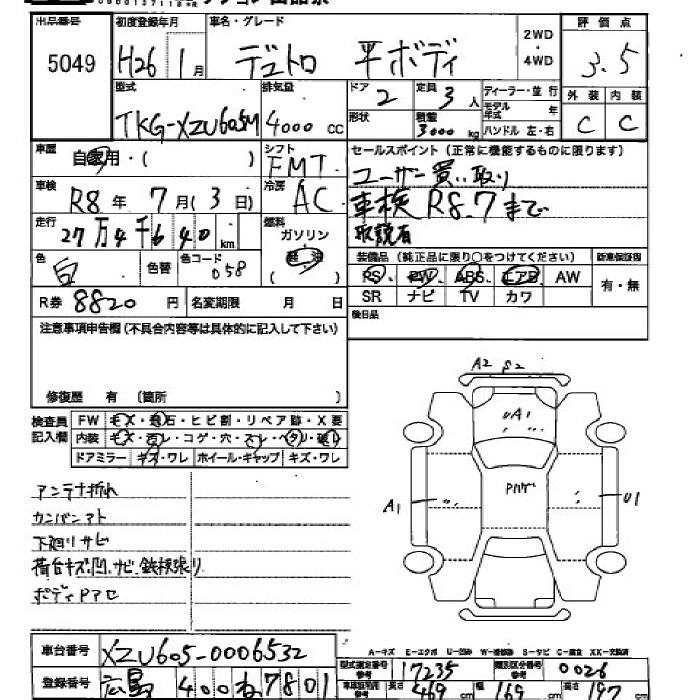 出品番号 初度登録年月 車名・グレード 2WD・4WD 評価点
5049 H26年 1月 デュトロ 平ボディ 3.5
型式 排気量 ドア 2 定員 3人 ディーラー・並行 外装 内装
TKG-XZU605M 4000cc 形状 積載 3000kg モデル年式 年 ハンドル 左・右 C C
車歴 自家用・( ) シフト FMT セールスポイント(正常に機能するものに限ります)
車検 R8年 7月(3日) 冷房 AC ユーザー買い取り
車検R8.7まで
走行 27万4千640km 燃料 ガソリン 軽油 ( ) 取説有
色 白 色替 色コード 058 装備品(純正品に限り○をつけてください) 新車保証書
PS・PW・ABS・エアB・AW 有・無
R券 8820円 名変期限 月 日 SR ナビ TV カワ
注意事項申告欄(不具合内容等は具体的に記入して下さい) 後日品
修復歴 有 〔箇所 〕
検査員記入欄 FW キズ・飛石・ヒビ割・リペア跡・X要
内装 キズ・汚レ・コゲ・穴・スレ・ヘタリ・破レ
ドアミラー キズ・ワレ ホイール・キャップ キズ・ワレ
A2 S2
UA1
Pハゲ
A1 U1
アンテナ折れ
カンバンアト
下廻りサビ
荷台キズ、凹、サビ、鉄板張り
ボディPアセ
A-キズ E-エクボ U-凹み W-補修跡 S-サビ C-腐食 XX-交換済
車台番号 XZU605-0006532
型式指定番号 17235 類別区分番号 0026
登録番号 広島 400 ね 7801 長さ 469cm 幅 169cm 高さ 197cm